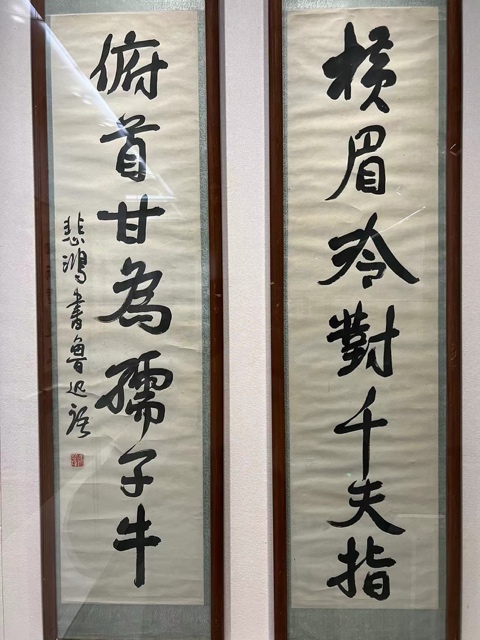 橫眉冷對千夫指
俯首甘為孺子牛
悲鴻書魯迅語